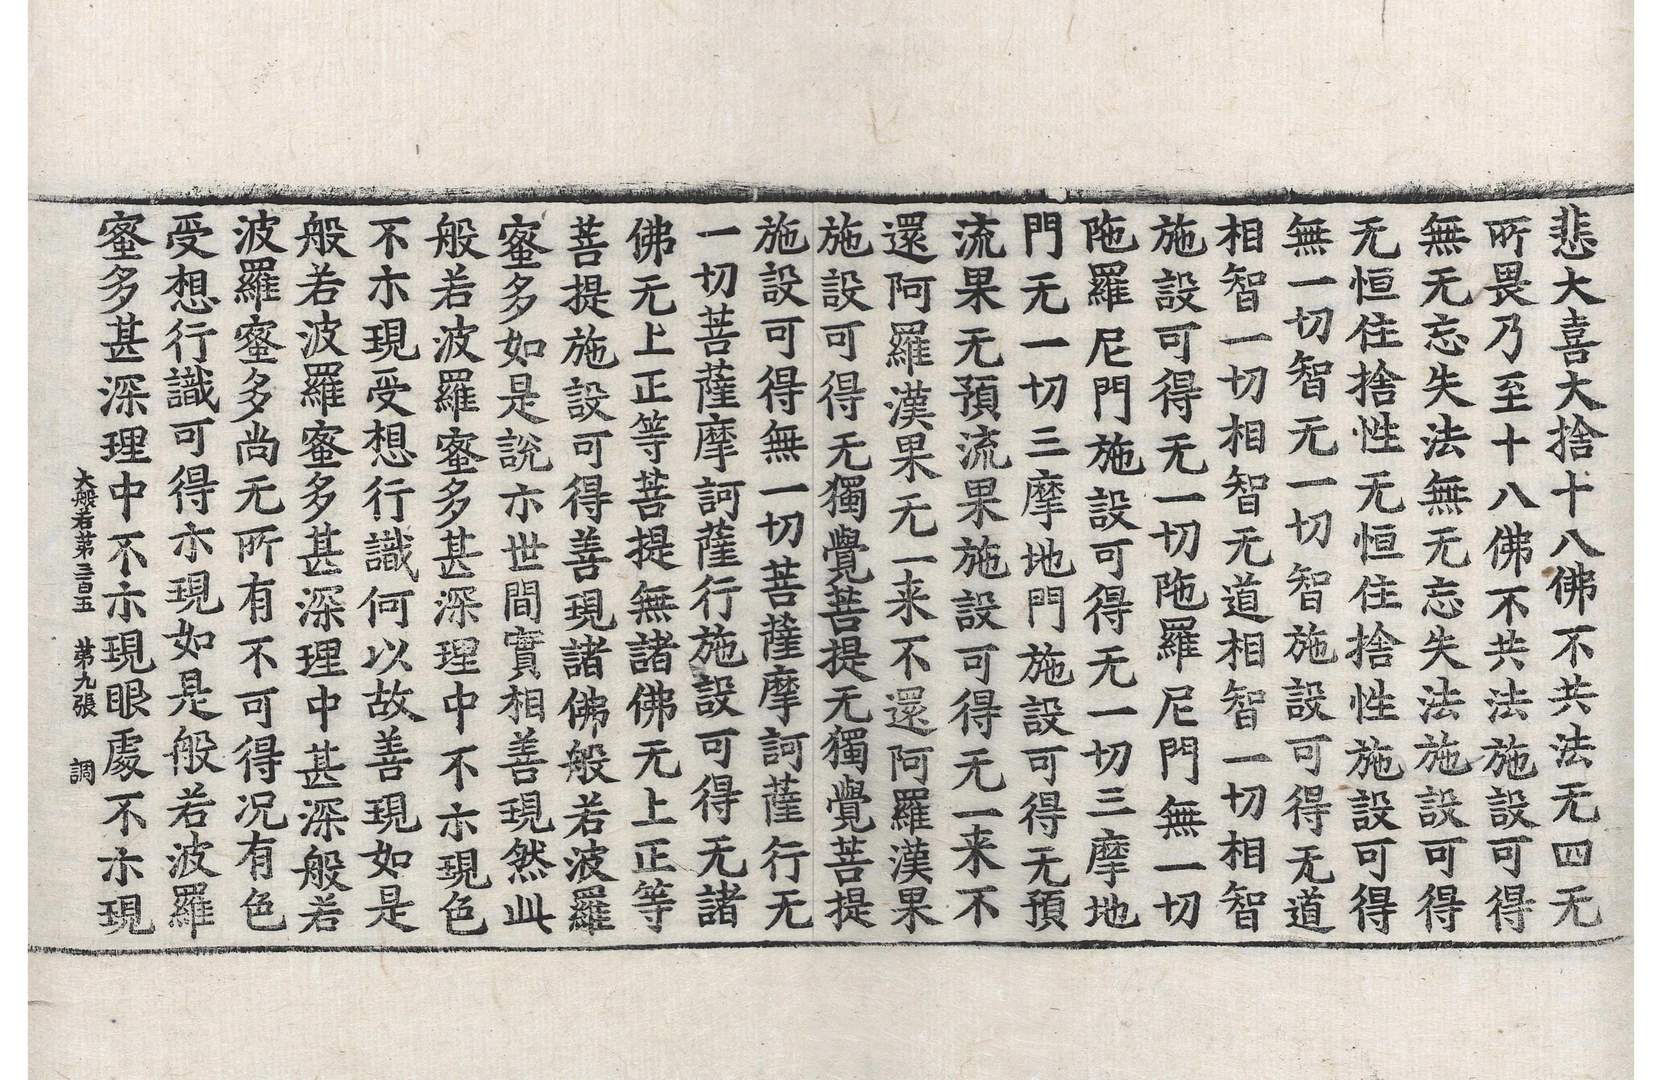 悲大喜大捨十八佛不共法无四无
所畏乃至十八佛不共法施設可得
無无忘失法無无忘失法施設可得
无恒住捨性无恒住捨性施設可得
無一切智无一切智施設可得无道
相智一切相智无道相智一切相智
施設可得无一切陁羅尼門無一切
陁羅尼門施設可得无一切三摩地
門无一切三摩地門施設可得无預
流果无預流果施設可得无一来不
還阿羅漢果无一来不還阿羅漢果
施設可得无獨覺菩提无獨覺菩提
施設可得無一切菩薩摩訶薩行无
一切菩薩摩訶薩行施設可得无諸
佛无上正等菩提無諸佛无上正等
菩提施設可得善現諸佛般若波羅
蜜多如是說示世間實相善現然此
般若波羅蜜多甚深理中不示現色
不示現受想行識何以故善現如是
般若波羅蜜多甚深理中甚深般若
波羅蜜多尚无所有不可得况有色
受想行識可得示現如是般若波羅
蜜多甚深理中不示現眼處不示現
大般若第三百五 第九張 調